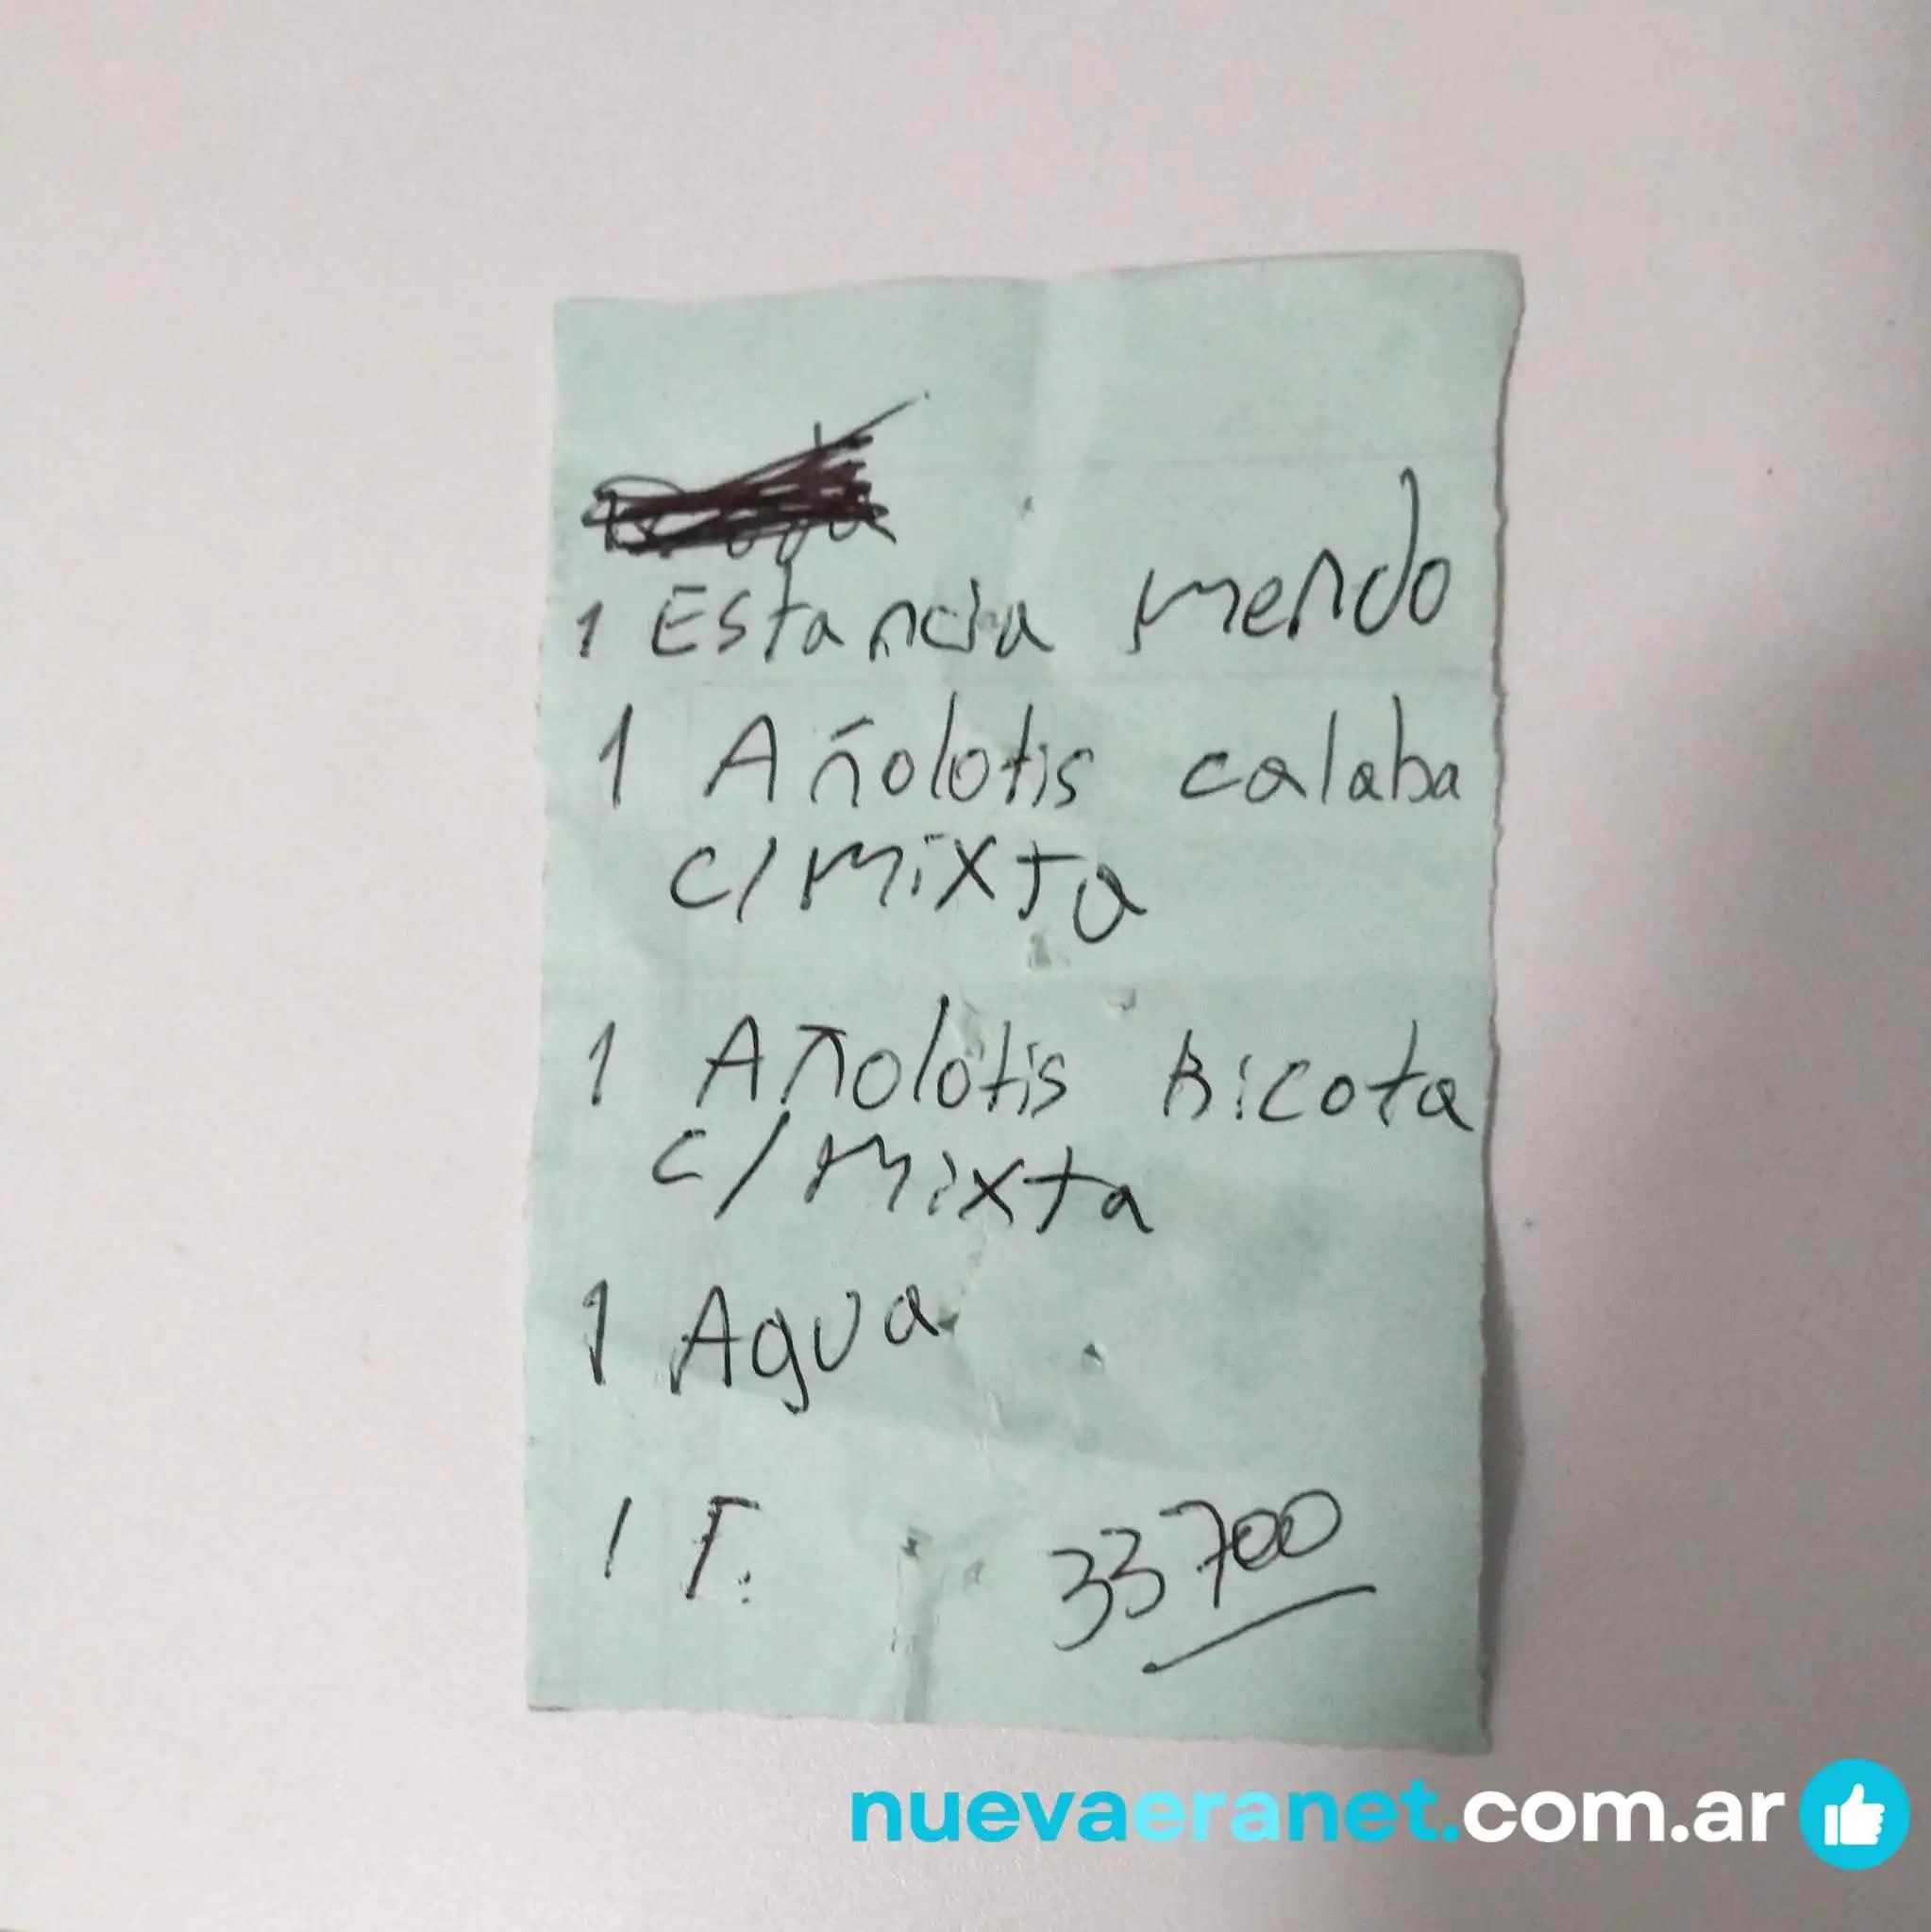 1 Estancia mendo
1 Añolotis calaba
c/mixta
1 Añolotis Ricota
c/mixta
1 Agua
1 F.
33700
nuevaeranet.com.ar